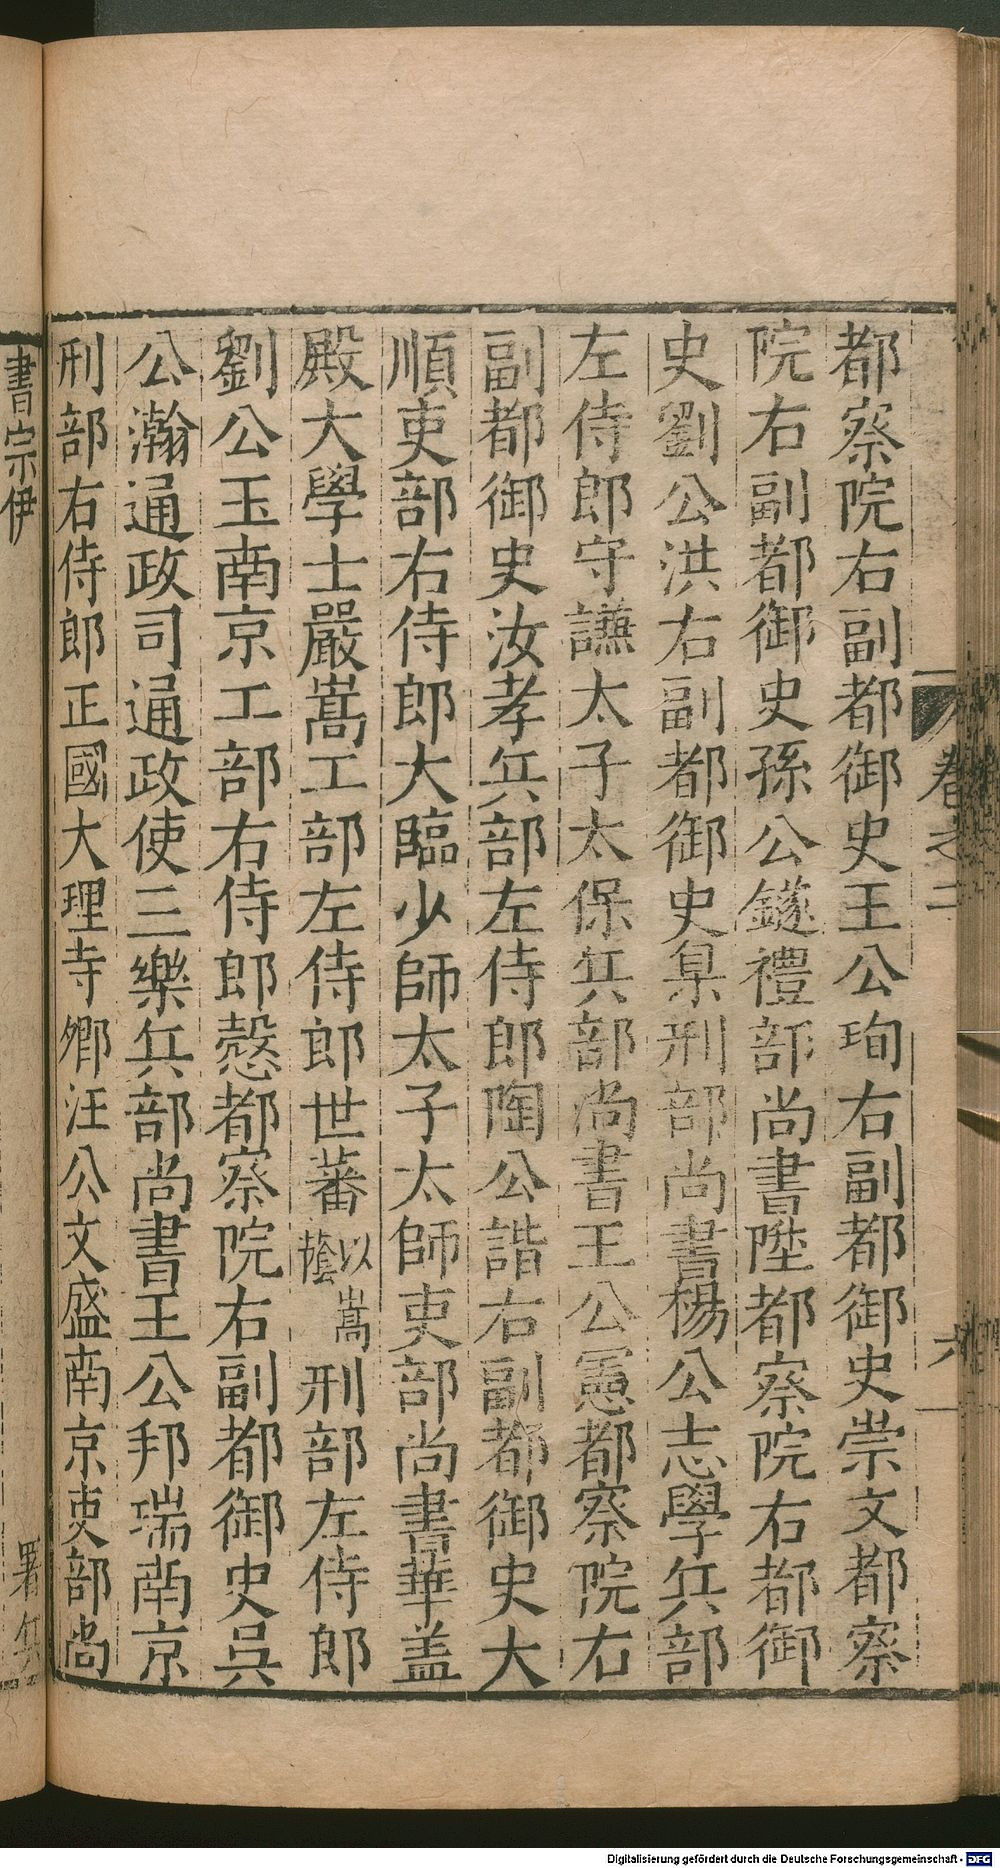 卷之二
六
都察院右副都御史王公珣右副都御史崇文都察
院右副都御史孫公鐩禮部尚書陞都察院右都御
史劉公洪右副都御史杲刑部尚書楊公志學兵部
左侍郎守謙太子太保兵部尚書王公憲都察院右
副都御史汝孝兵部左侍郎陶公諧右副都御史大
順吏部右侍郎大臨少師太子太師吏部尚書華盖
殿大學士嚴嵩工部左侍郎世蕃以嵩蔭刑部左侍郎
劉公玉南京工部右侍郎慤都察院右副都御史吳
公瀚通政司通政使三樂兵部尚書王公邦瑞南京
刑部右侍郎正國大理寺鄉汪公文盛南京吏部尚
書宗伊
署
Digitalisierung gefördert durch die Deutsche Forschungsgemeinschaft - DFG